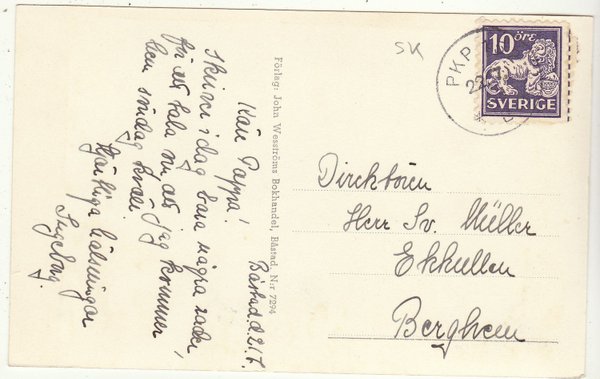 Båstad d. 21.7.
Kära Pappa!
Skriver i dag bara några rader,
för att tala om att jag kommer
hem söndag kväll.
Hjärtliga hälsningar
Ingeborg.
Förlag: John Wesströms Bokhandel, Båstad. N:r 7294
SK
PKP
10 öre
SVERIGE
Direktören
Herr Sv. Müller
Ekkullen
Berghem